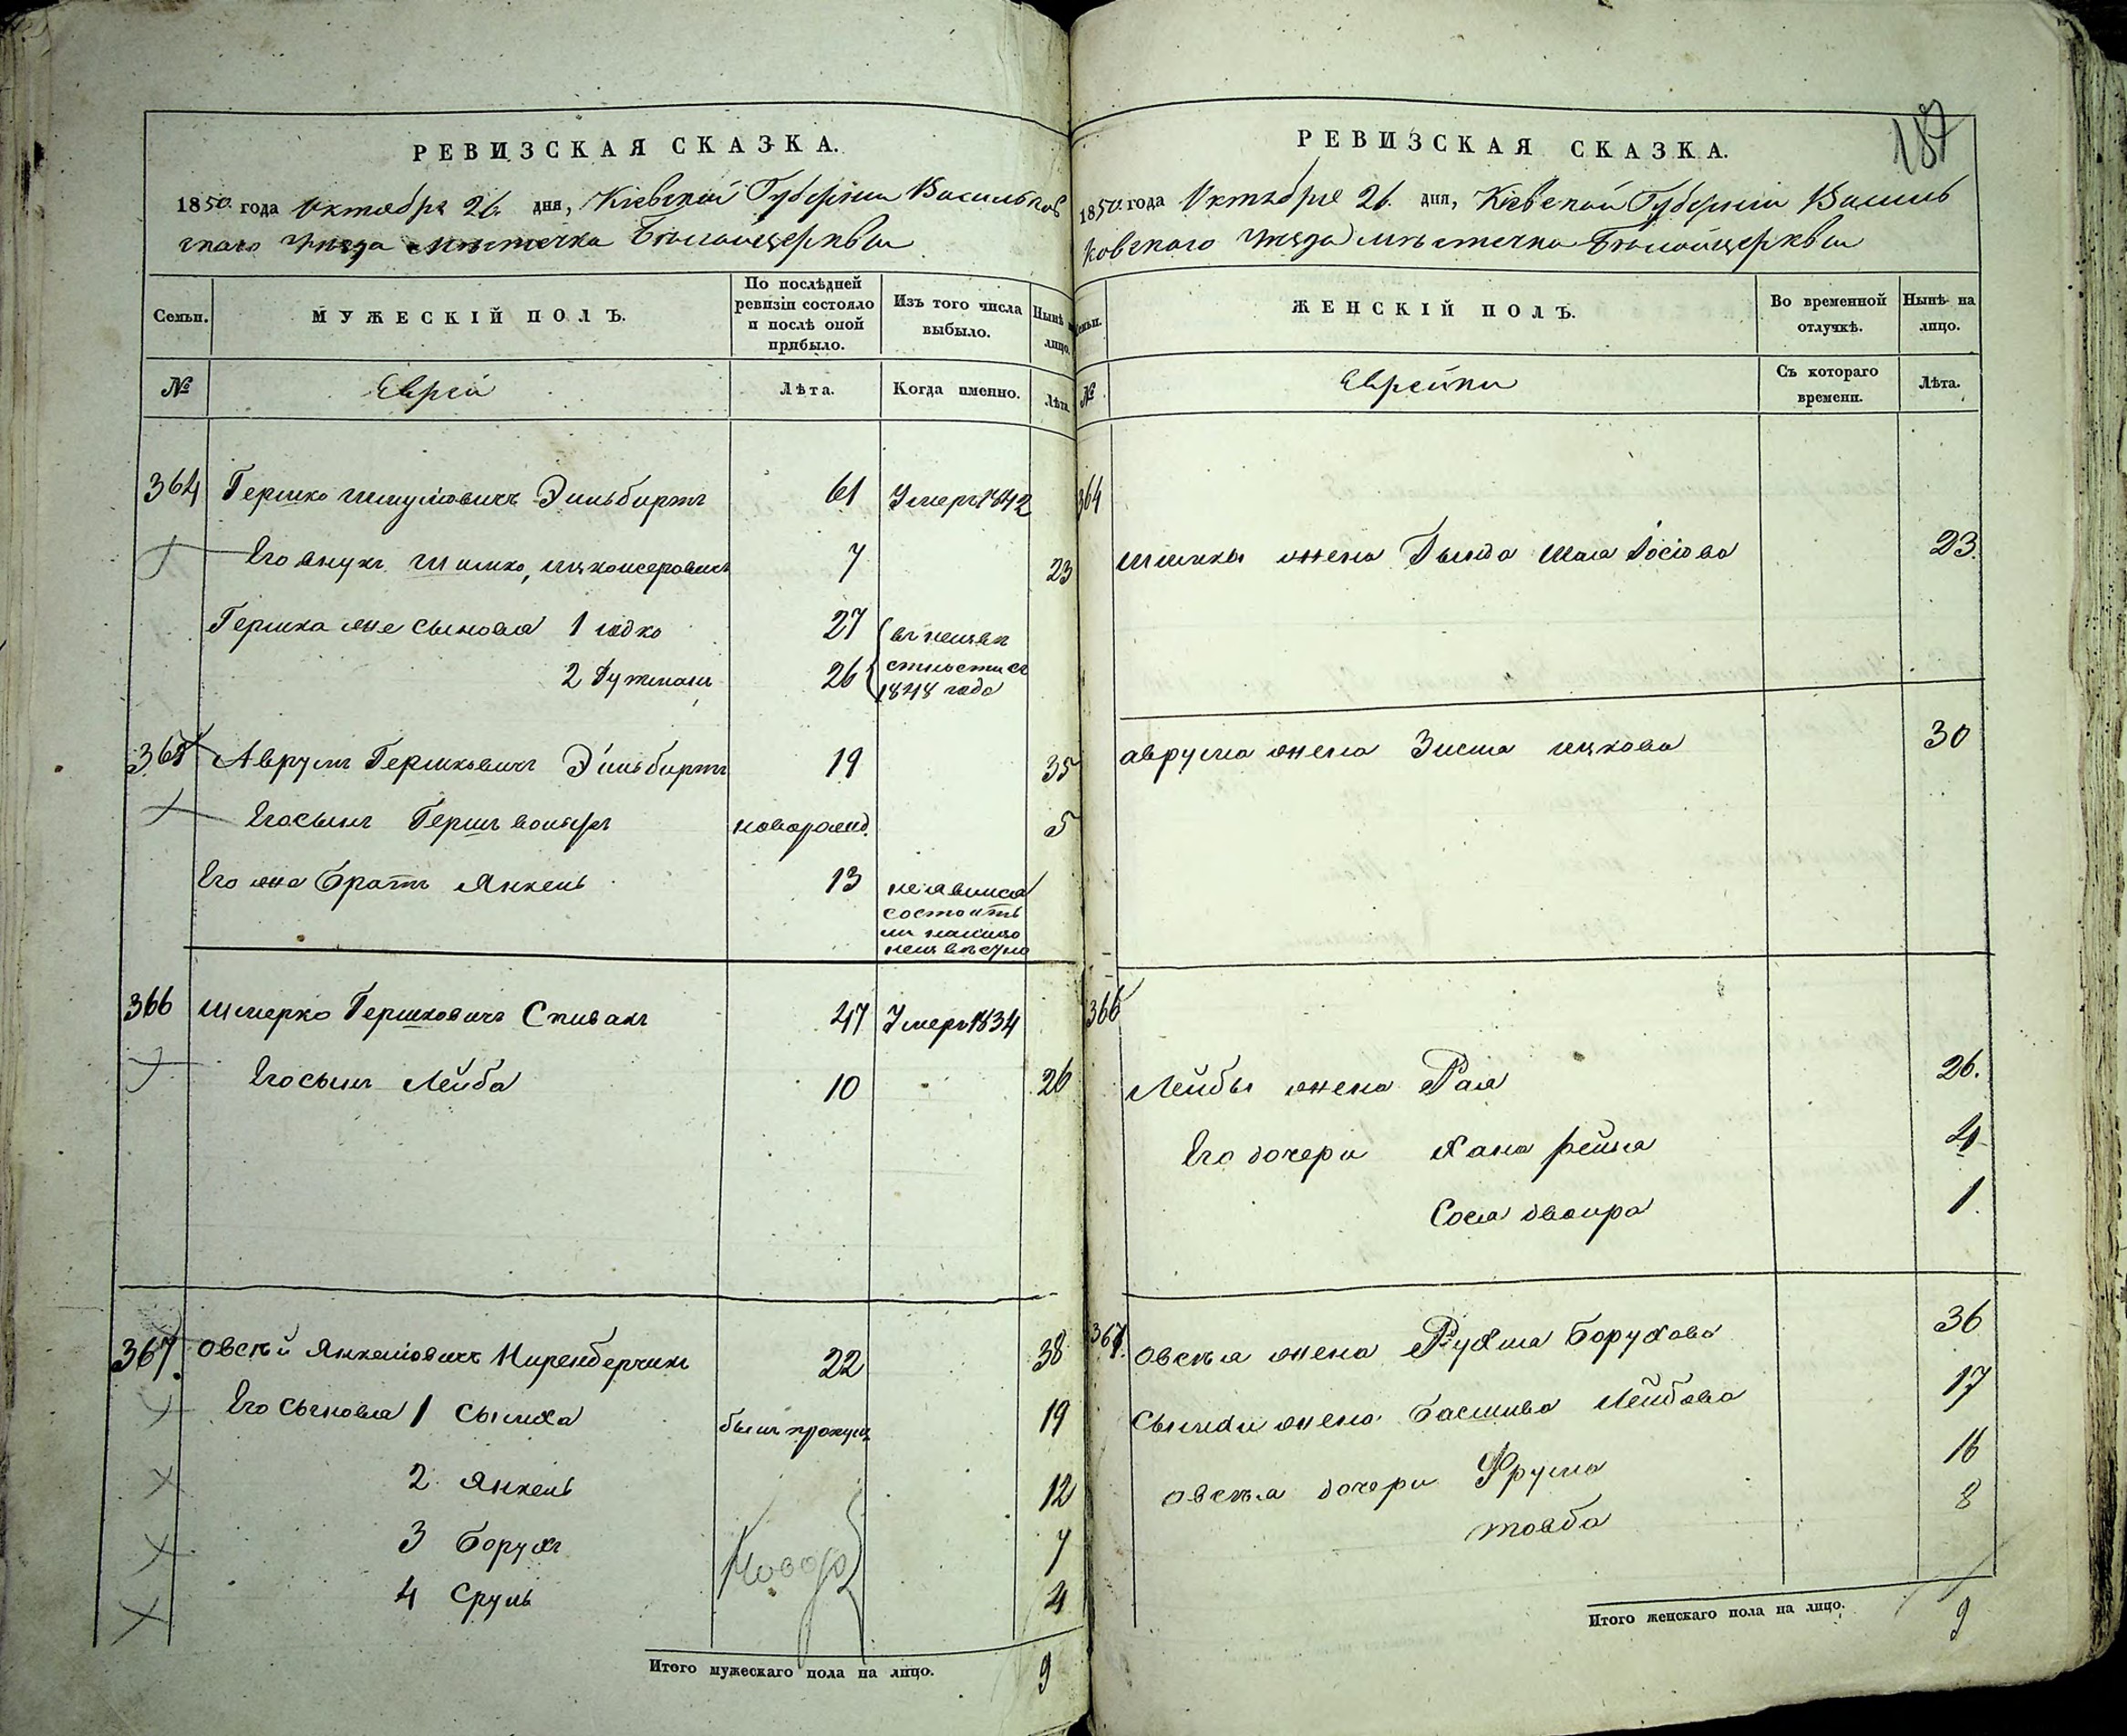 РЕВИЗСКАЯ СКАЗКА.
1850 года Октября 26. дня, Кіевской Губерніи Васильков
скаго уезда местечка Белойцеркви
Семьи.
МУЖЕСКІЙ ПОЛЪ.
По послѣдней ревизіи состояло и послѣ оной прибыло.
Изъ того числа выбыло.
Нынѣ на лицо.
№
Евреи
Лѣта.
Когда именно.
Лѣта.
364 Гершко Шмулiовичъ Эльбиртъ 61 Умеръ 1842
Его внукъ Шимко 7 23
Гершка же сыновья 1 Юдко 27
2 Гутманъ 26
въ неизвестности съ 1848 года
365 Аврумъ Гершковичъ Эльбиртъ 19 35
Его сынъ Гершъ новорожд. 5
Его же братъ Янкель 13 неявился
состоитъ
ли налицо
неизвестно
366 Шмерко Гершковичъ Спивакъ 47 Умеръ 1834
Его сынъ Лейба 10 26
367. Овсѣй Янкелiовичъ Ниренберчикъ 22 38
Его сыновья 1 Сымха былъ пропущ 19
2 Янкель 12
3 Борухъ 7
4 Сруль 4
Новор
Итого мужескаго пола на лицо. 9
187
РЕВИЗСКАЯ СКАЗКА.
1850 года Октября 26. дня, Кіевской Губерніи Василь
ковскаго уезда местечка Белойцеркви
Семьи.
ЖЕНСКІЙ ПОЛЪ.
Во временной отлучкѣ.
Нынѣ на лицо.
№
Еврейки
Съ котораго времени.
Лѣта.
364
Шимки жена Гында Мася Iосiова 23.
Аврума жена Зисля Ицкова 30
366
Лейбы жена Рая 26.
Его дочери Хана Рейзя 4
Сося Двойра 1.
367. Овсѣя жена Рухля Борухова 36
Сымхи жена Басшива Лейбова 17
Овсѣя дочери Фрума 16
Товба 8
Итого женскаго пола на лицо. 9